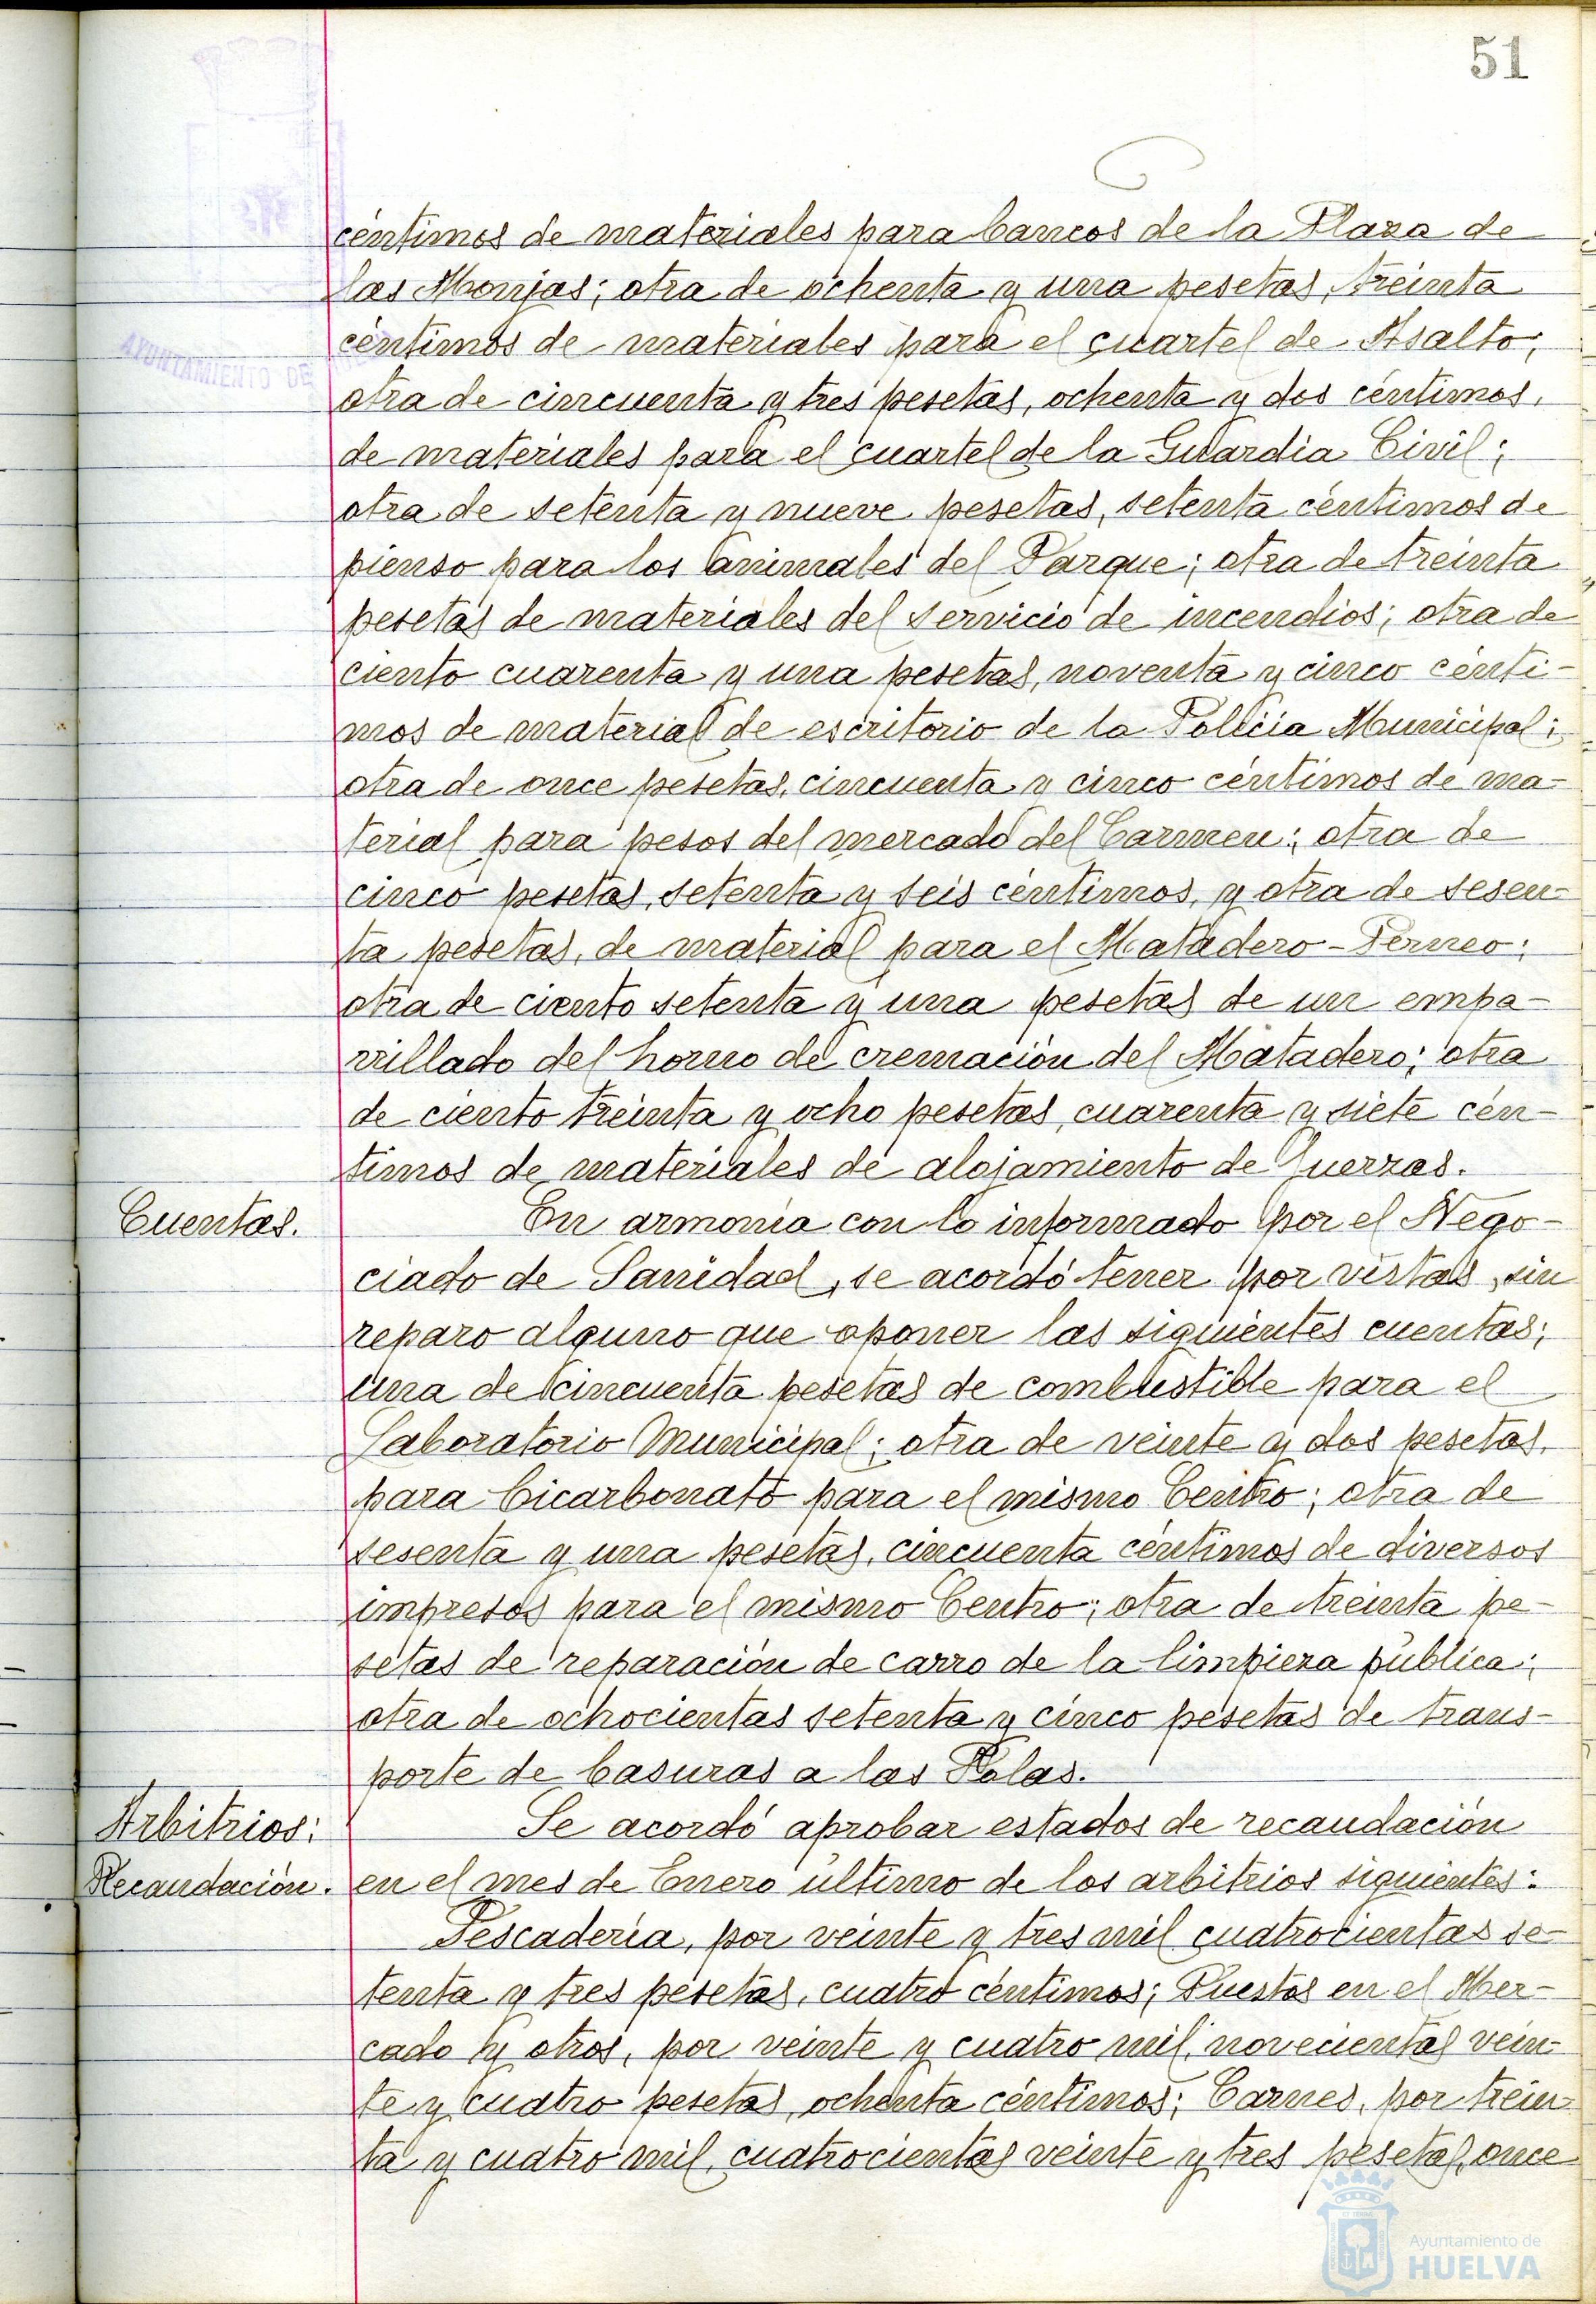 51
céntimos de materiales para bancos de la Plaza de
las Monjas; otra de ochenta y una pesetas, treinta
céntimos de materiales para el cuartel de Asalto;
otra de cincuenta y tres pesetas, ochenta y dos céntimos,
de materiales para el cuartel de la Guardia Civil;
otra de setenta y nueve pesetas, setenta céntimos de
pienso para los animales del Parque; otra de treinta
pesetas de materiales del servicio de incendios; otra de
ciento cuarenta y una pesetas, noventa y cinco cénti-
mos de material de escritorio de la Policia Municipal;
otra de once pesetas, cincuenta y cinco céntimos de ma-
terial para pesos del mercado del Carmen; otra de
cinco pesetas, setenta y seis céntimos, y otra de sesen-
ta pesetas, de material para el Matadero-Perneo;
otra de ciento setenta y una pesetas de un empa-
rrillado del horno de cremación del Matadero; otra
de ciento treinta y ocho pesetas, cuarenta y siete cén-
timos de materiales de alojamiento de fuerzas.
Cuentas. En armonia con lo informado por el Nego-
ciado de Sanidad, se acordó tener por vistas, sin
reparo alguno que oponer las siguientes cuentas;
una de cincuenta pesetas de combustible para el
Laboratorio Municipal; otra de veinte y dos pesetas,
para bicarbonato para el mismo Centro; otra de
sesenta y una pesetas, cincuenta céntimos de diversos
impresos para el mismo Centro; otra de treinta pe-
setas de reparación de carro de la limpieza pública;
otra de ochocientas setenta y cinco pesetas de trans-
porte de basuras a las Palas.
Arbitrios: Se acordó aprobar estados de recaudación
Recaudación. en el mes de Enero último de los arbitrios siguientes:
Pescaderia, por veinte y tres mil cuatrocientas se-
tenta y tres pesetas, cuatro céntimos; Puestos en el Mer-
cado y otros, por veinte y cuatro mil, novecientas vein-
te y cuatro pesetas, ochenta céntimos; Carnes, por trein-
ta y cuatro mil, cuatrocientas veinte y tres pesetas, once
AYUNTAMIENTO DE
Ayuntamiento de
HUELVA